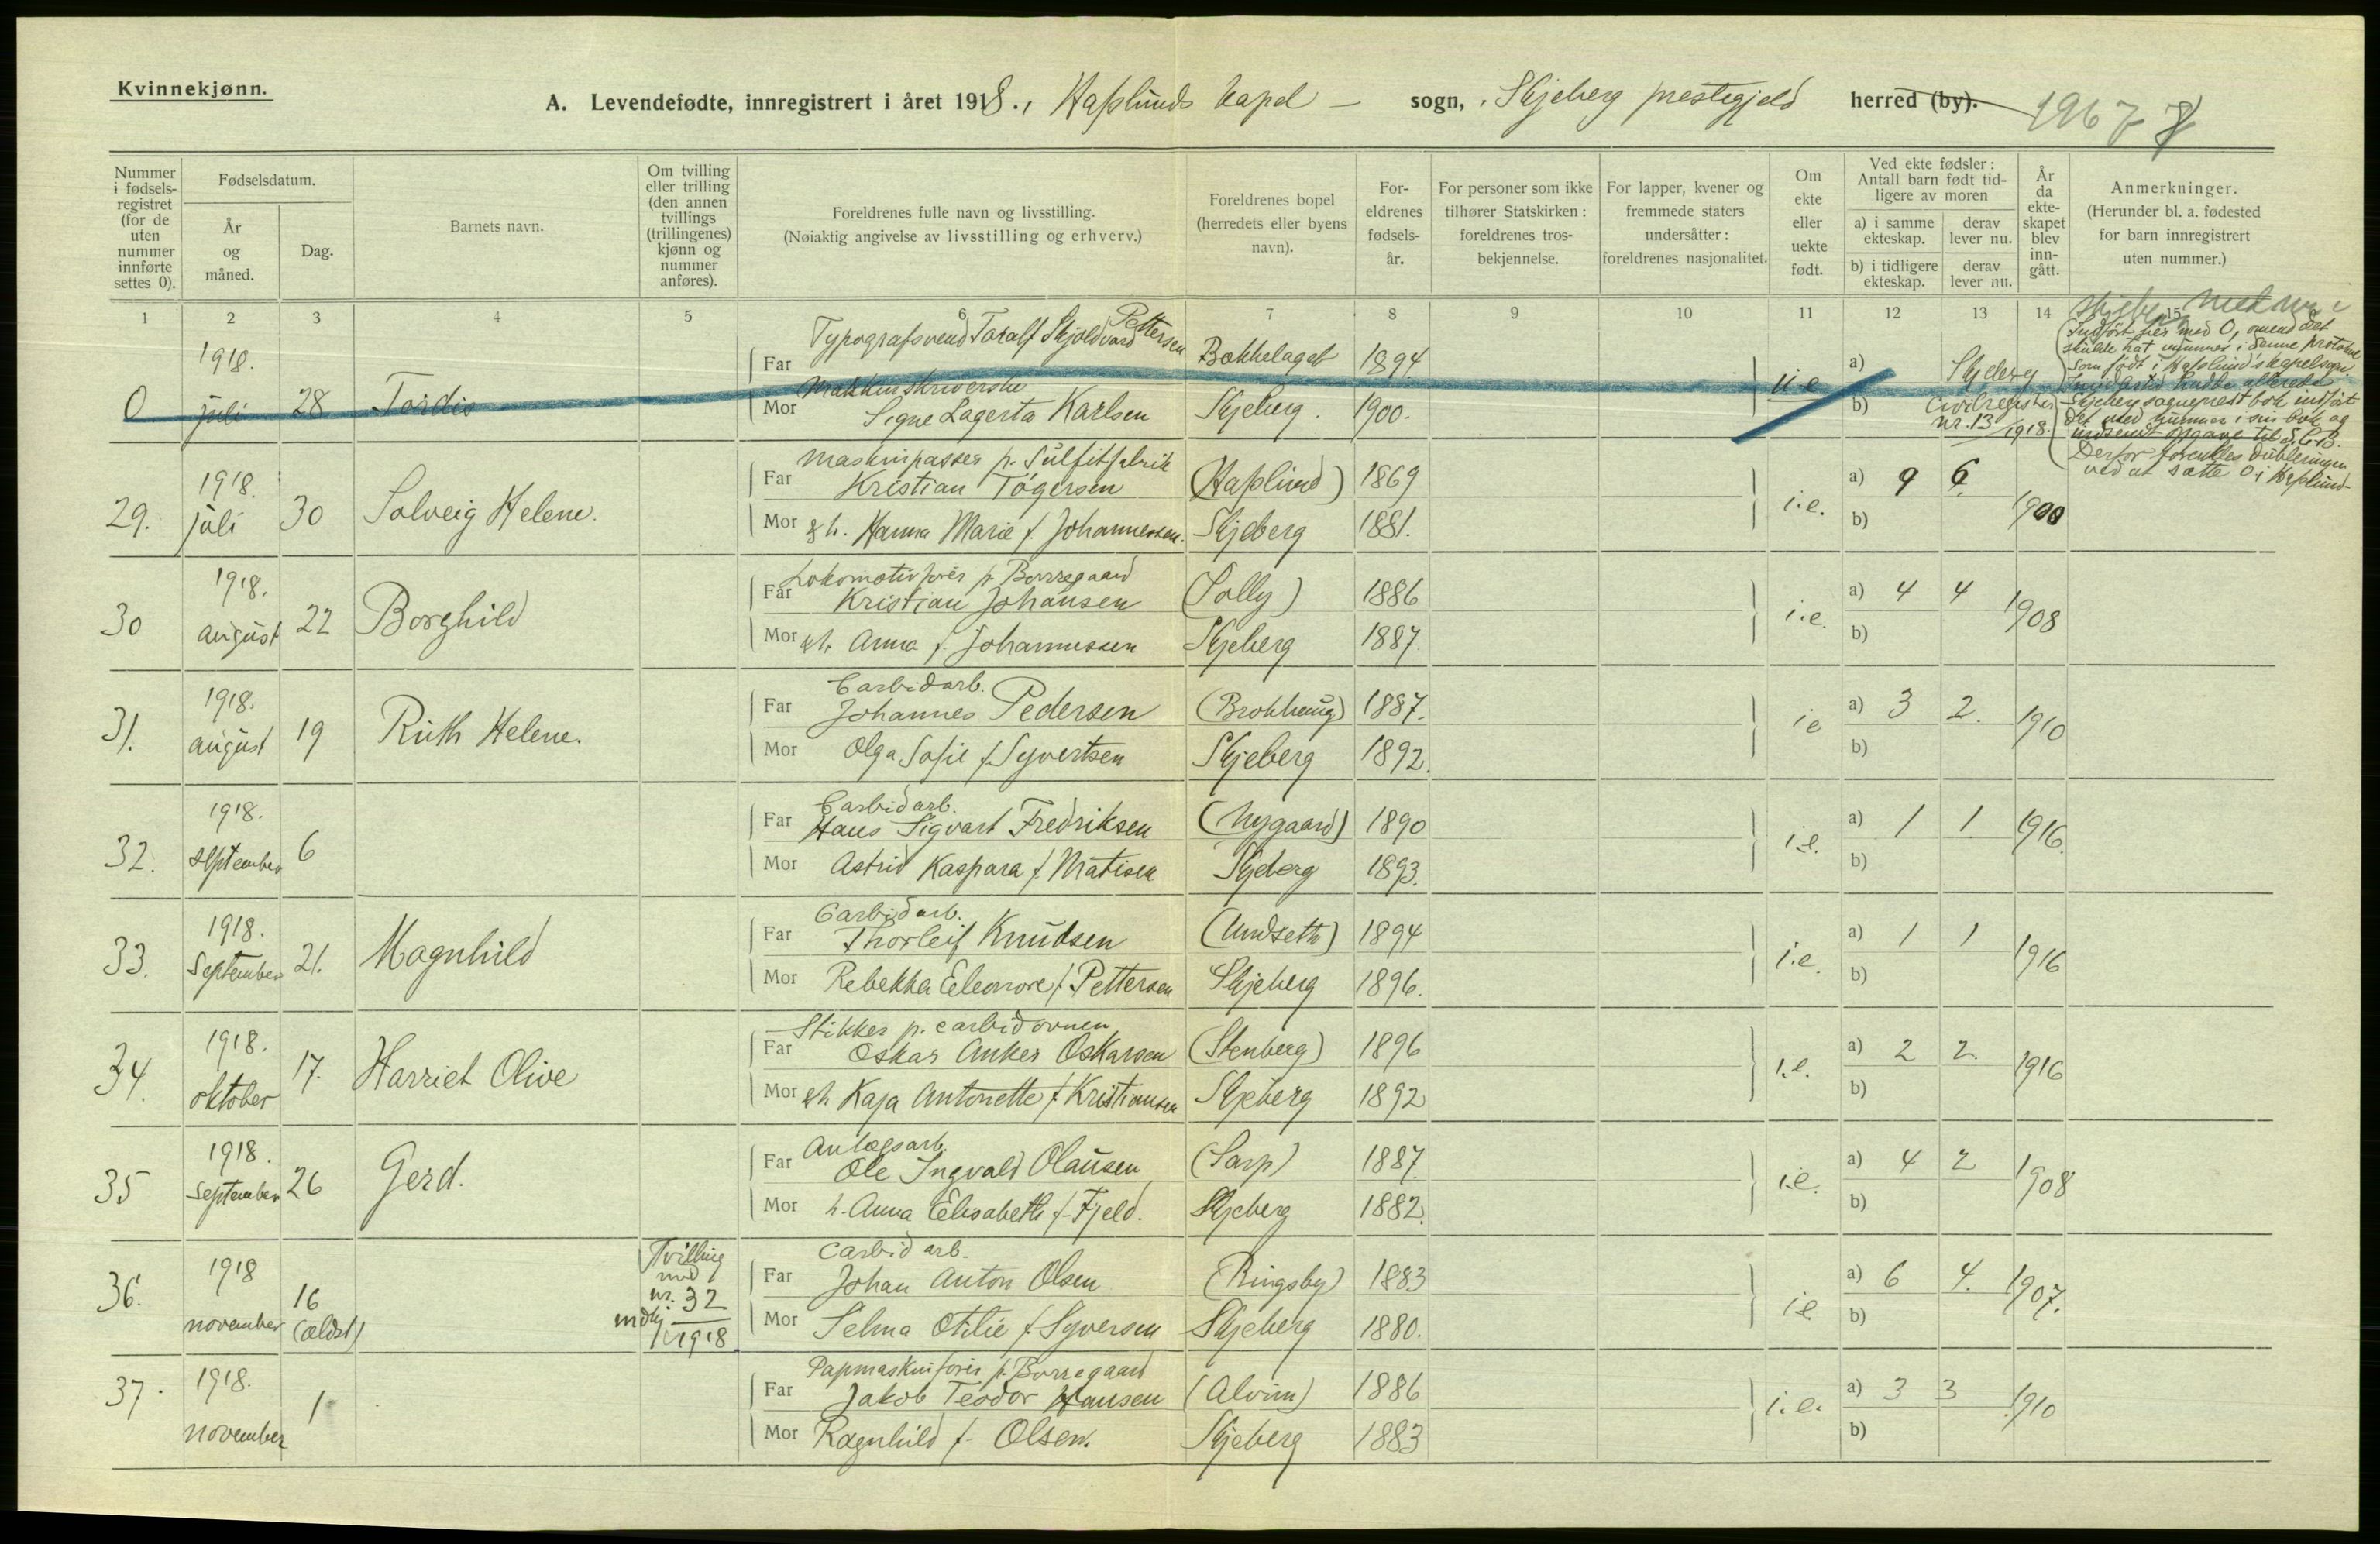 Kvinnekjønn.
A. Levendefødte, innregistrert i året 1918., Hafslunds kapel — sogn, Skjeberg prestegjeld herred (by).
Nummer i fødsels-registret (for de uten nummer innførte settes 0).
Fødselsdatum.
År og måned.
Dag.
Barnets navn.
Om tvilling eller trilling (den annen tvillings (trillingenes) kjønn og nummer anføres).
Foreldrenes fulle navn og livsstilling.
(Nøiaktig angivelse av livsstilling og erhverv.)
Foreldrenes bopel (herredets eller byens navn).
For-eldrenes fødsels-år.
For personer som ikke tilhører Statskirken: foreldrenes tros-bekjennelse.
For lapper, kvener og fremmede staters undersåtter: foreldrenes nasjonalitet.
Om ekte eller uekte født.
Ved ekte fødsler: Antall barn født tid-ligere av moren
a) i samme ekteskap.
derav lever nu.
b) i tidligere ekteskap.
derav lever nu.
År da ekte-skapet blev inn-gått.
Anmerkninger.
(Herunder bl. a. fødested for barn innregistrert uten nummer.)
1 2 3 4 5 6 7 8 9 10 11 12 13 14 15
0 1918. juli 28 Tordis
Far Typografsvend Toralf Skjoldvard Pettersen Bækkelaget 1894.
Mor Maskinskriverske Signe Lagerta Karlsen Skjeberg. 1900.
u.e a) b) Skjeberg Civilregister nr. 13 1918.
Indført her med 0, omend det
skulde hat nummer i denne protokol
som født i Hafslund's kapelsogn
Skjeberg sogneprest bok indført
det med nummer i sin bok og
indsendt opgave til S.C.B.
Derfor forenkles dubleringen
ved at sætte 0 i Hafslund
29. 1918. juli 30 Solveig Helene.
Far Maskinpasser p. Sulfitfabrik Kristian Tøgersen (Hafslund) 1869
Mor h. Hanna Marie f. Johannessen. Skjeberg 1881.
i.e. a) 9 6 b) 1900
30 1918. august 22 Borghild
Far Lokomotivfører p. Borregaard Kristian Johansen (Solly) 1886
Mor h. Anna f. Johannessen Skjeberg 1887.
i.e. a) 4 4 b) 1908
31. 1918. august 19 Ruth Helene.
Far Carbidarb. Johannes Pedersen (Brokhaug) 1887.
Mor Olga Sofie f. Syvertsen Skjeberg 1892.
ie a) 3 2. b) 1910
32. 1918. september 6
Far Carbidarb. Hans Sigvart Fredriksen (Nygaard) 1890
Mor Astrid Kaspara f. Matisen Skjeberg 1893.
i.e. a) 1 1 b) 1916.
33. 1918. september 21. Magnhild
Far Carbidarb. Thorleif Knudsen (Lundseth) 1894
Mor Rebekka Eleonore f. Pettersen Skjeberg 1896.
i.e. a) 1 1 b) 1916
34. 1918. oktober 17. Harriet Olive
Far Stikker p. carbidovnen Oskar Anker Oskarsen (Stenberg) 1896
Mor h. Kaja Antonette f. Kristiansen Skjeberg 1892
i.e. a) 2 2 b) 1916
35 1918. september 26 Gerd.
Far Anlægsarb. Ole Ingvald Olausen (Sarp) 1887.
Mor h. Anna Elisabeth f. Fjeld. Skjeberg 1882.
i.e. a) 4 2 b) 1908
36. 1918 november 16 (ældst) Tvilling med nr. 32 mdkj. 1918.
Far Carbid arb. Johan Anton Olsen (Ringsby) 1883
Mor Selma Otilie f. Syversen Skjeberg 1880.
i.e. a) 6 4. b) 1907.
37. 1918. november 1
Far Papmaskinfører p. Borregaard Jakob Teodor Hansen (Alvim) 1886
Mor Ragnhild f. Olsen. Skjeberg 1883
i.e. a) 3 3 b) 1910